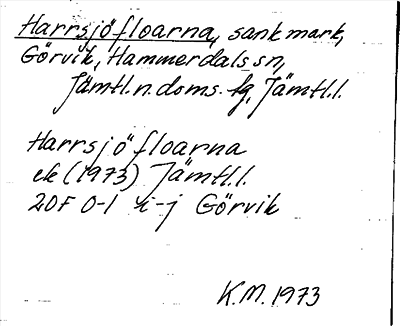 Harrsjöfloarna, sank mark,
Görvik, Hammerdals sn,
Jämtl.n.doms.fg, Jämtl.l.
Harrsjöfloarna
ek (1973) Jämtl.l.
20F 0-1 i-j Görvik
K.M. 1973